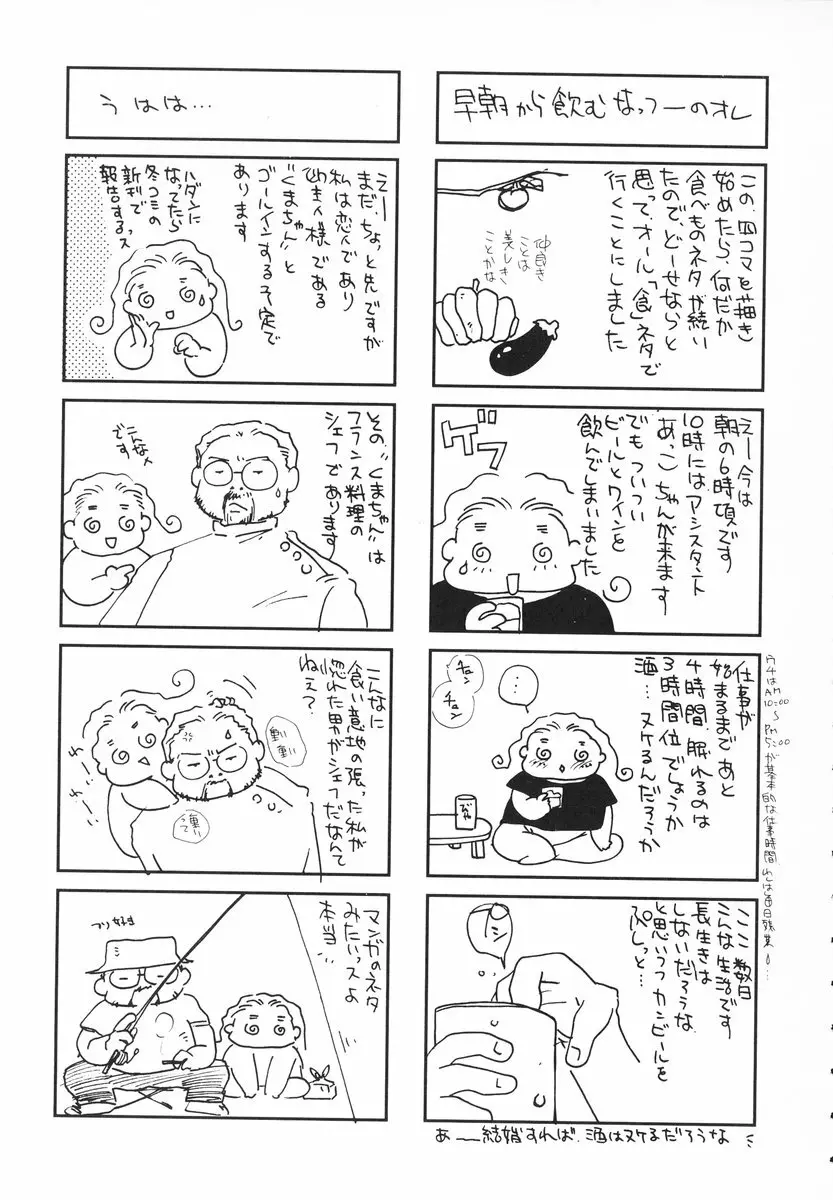 早朝から飲むなっつーのオレ
この四コマを描き
始めたら、何だか
食べものネタが続い
たので、どーせならと
思って、オール「食」ネタで
行くことにしました
仲良き
ことは
美しき
ことかな
えー今は
朝の6時頃です
10時にはアシスタント
あっこちゃんが来ます
でもついつい
ビールとワインを
飲んでしまいました
ゲフ
仕事が
始まるまであと
4時間、眠れるのは
3時間位でしょうか
酒…ヌケるんだろうか
…
チョン
チョン
ウチはAM
10:00
〜
PM
5:00
が基本的な仕事時間
ここ数日
こんな生活です
長生きは
しないだろうな
と思いつつカンビールを
ぷしっと…
プシ
あ——結婚すれば、酒はヌケるだろうな
うはは…
えー
まだ、ちょっと先ですが
私は恋人であり
御主人様である
"くまちゃん"と
ゴールインする予定で
あります
ハダンに
なってたら
冬コミの
新刊で
報告するっス
その"くまちゃん"は
フランス料理の
シェフであります
こんな人
です
こんなに
食い意地の張った私が
惚れた男がシェフだなんて
ねぇ?
重い
重い
重い
って
マンガのネタ
みたいっスよ
本当…
ツリ好き